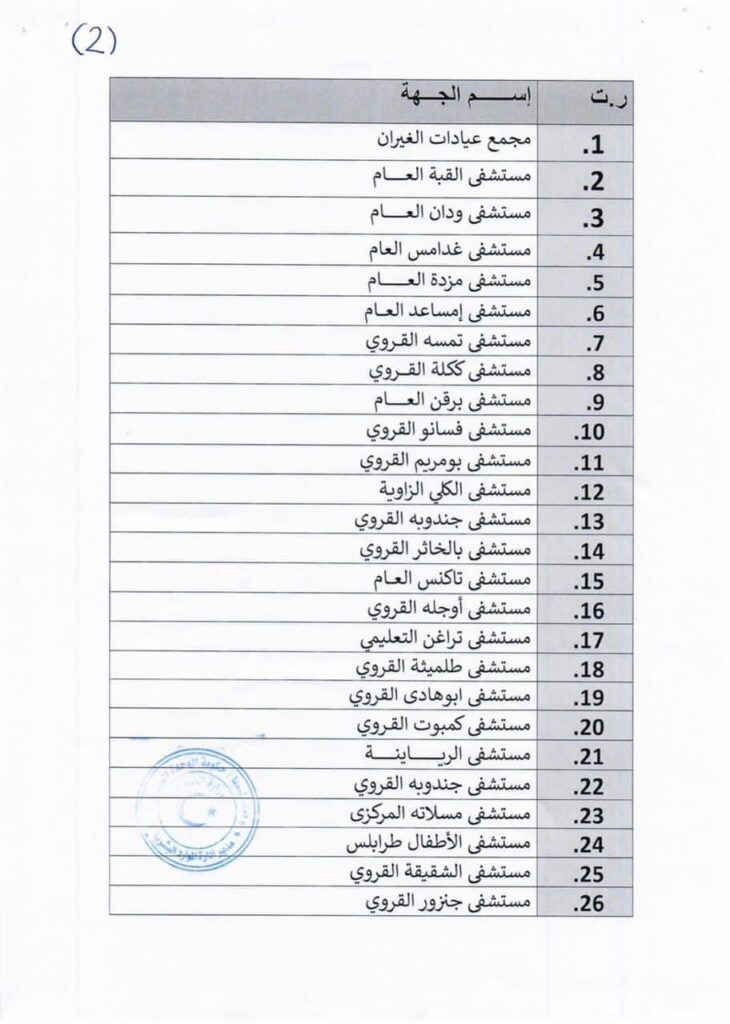 (2)
ر.ت إســـم الجـــهة
1. مجمع عيادات الغيران
2. مستشفى القبة العـــام
3. مستشفى ودان العـــام
4. مستشفى غدامس العام
5. مستشفى مزدة العـــام
6. مستشفى إمساعد العـام
7. مستشفى تمسه القـروي
8. مستشفى ككلة القــروي
9. مستشفى برقن العـــام
10. مستشفى فسانو القروي
11. مستشفى بومريم القروي
12. مستشفى الكلي الزاوية
13. مستشفى جندوبه القروي
14. مستشفى بالخاثر القروي
15. مستشفى تاكنس العـام
16. مستشفى أوجله القروي
17. مستشفى تراغن التعليمي
18. مستشفى طلميثة القروي
19. مستشفى ابوهادى القروي
20. مستشفى كمبوت القروي
21. مستشفى الريـــــاينــة
22. مستشفى جندوبه القروي
23. مستشفى مسلاته المركزى
24. مستشفى الأطفال طرابلس
25. مستشفى الشقيقة القروي
26. مستشفى جنزور القروي
حكومة الوحدة